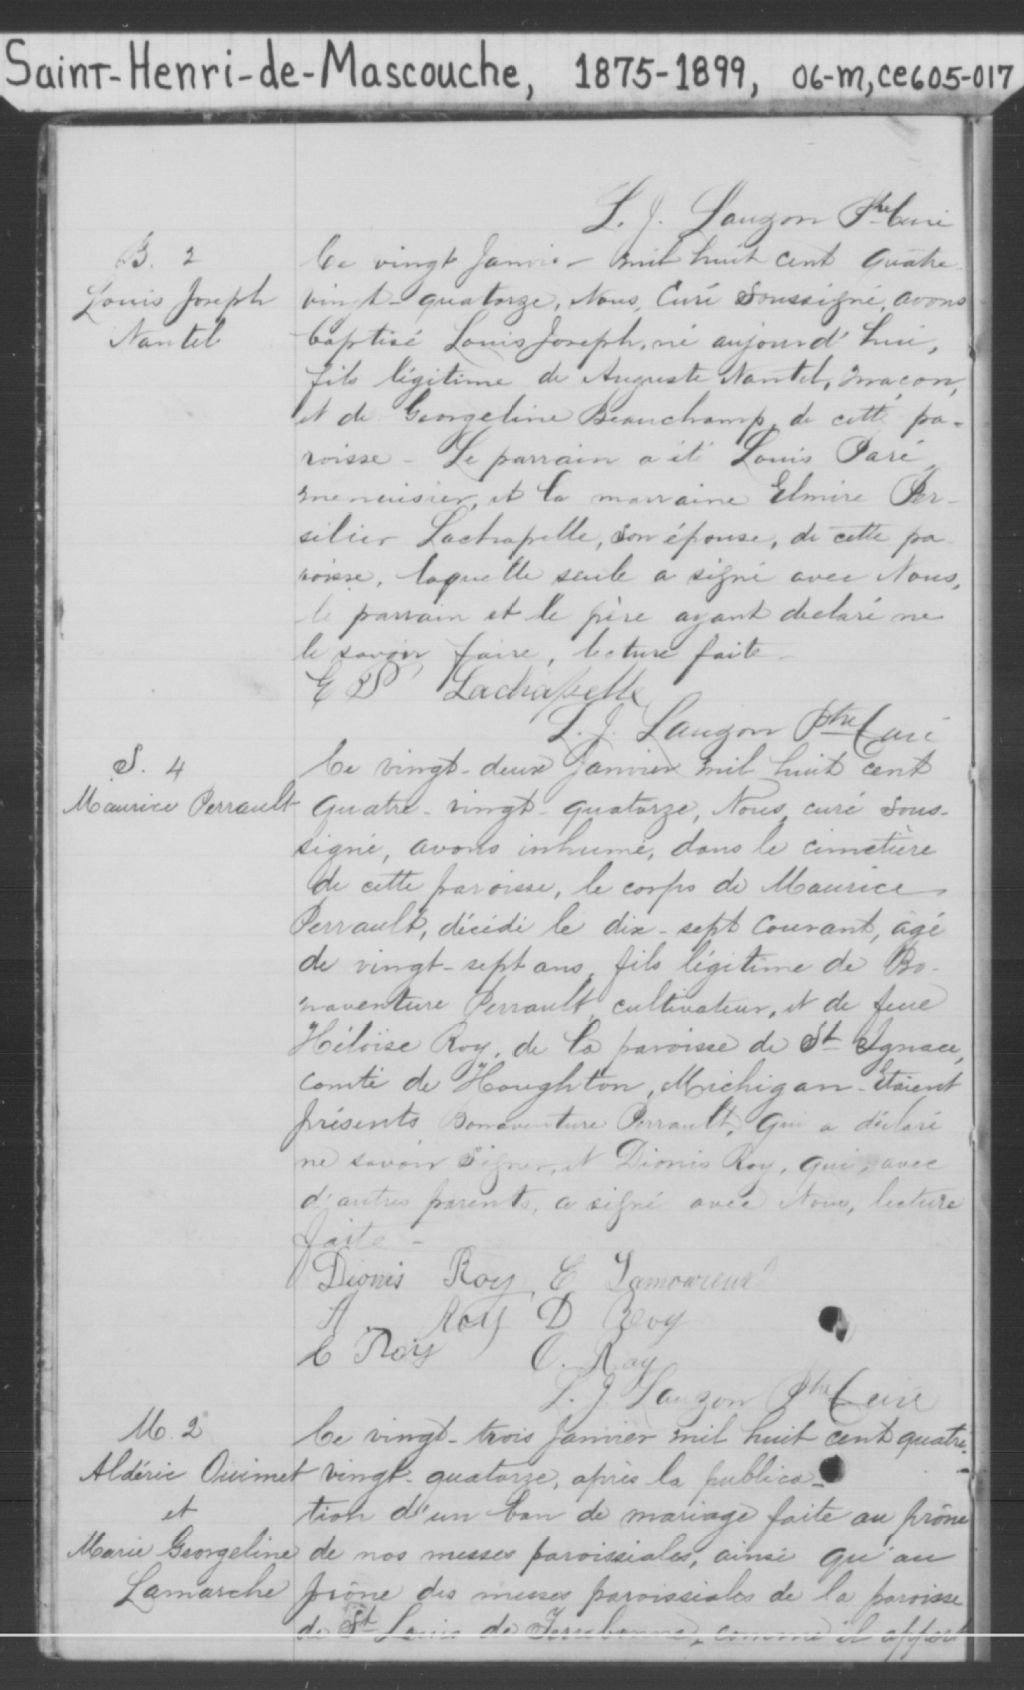 Saint-Henri-de-Mascouche, 1875-1899, 06-m, ce605-017
L. J. Lauzon Ptre Curé
B. 2
Louis Joseph
Nantel
Ce vingt Janvier mil huit cent quatre-
vingt-quatorze, Nous, Curé Soussigné, avons
baptisé Louis Joseph, né aujourd'hui,
fils légitime de Auguste Nantel, maçon,
et de Georgeline Beauchamp, de cette pa-
roisse - Le parrain a été Louis Paré,
menuisier, et la marraine Elmire Per-
silier Lachapelle, son épouse, de cette pa-
roisse, laquelle seule a signé avec Nous,
le parrain et le père ayant declaré ne
le savoir faire, lecture faite -
E P Lachapelle
L. J. Lauzon Ptre Curé
S. 4
Maurice Perrault
Ce vingt-deux Janvier mil huit cent
quatre-vingt-quatorze, Nous, curé sous-
signé, avons inhumé, dans le cimetière
de cette paroisse, le corps de Maurice
Perrault, décédé le dix-sept Courant, âgé
de vingt-sept ans, fils légitime de Bo-
naventure Perrault, cultivateur, et de feue
Héloïse Roy, de la paroisse de St Ignace,
comté de Houghton, Michigan - Etaient
présents Bonaventure Perrault, qui a déclaré
ne savoir signer, et Dionis Roy, qui, avec
d'autres parents, a signé avec Nous, lecture
faite -
Dionis Roy E Lamoureux
A Roy D Roy
C Roy O. Roy
L. J. Lauzon Ptre Curé
M. 2
Aldéric Ouimet
et
Marie Georgeline
Lamarche
Ce vingt-trois Janvier mil huit cent quatre-
vingt-quatorze, après la publica-
tion d'un ban de mariage faite au prône
de nos messes paroissiales, ainsi qu'au
prône des messes paroissiales de la paroisse
de St Louis de Terrebonne, comme il appert